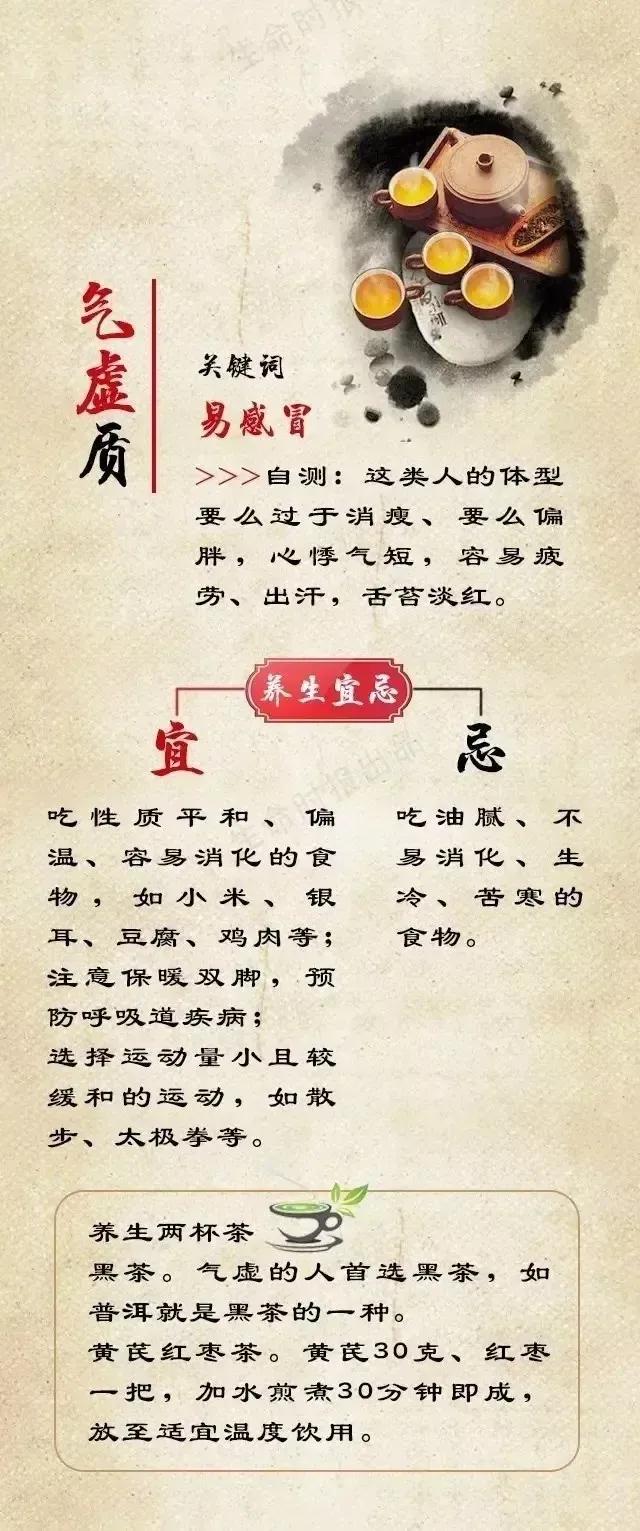 生命时报
气虚质
关键词
易感冒
>>>自测：这类人的体型
要么过于消瘦、要么偏
胖，心悸气短，容易疲
劳、出汗，舌苔淡红。
养生宜忌
宜
吃性质平和、偏
温、容易消化的食
物，如小米、银
耳、豆腐、鸡肉等；
注意保暖双脚，预
防呼吸道疾病；
选择运动量小且较
缓和的运动，如散
步、太极拳等。
忌
吃油腻、不
易消化、生
冷、苦寒的
食物。
生命时报出品
养生两杯茶
黑茶。气虚的人首选黑茶，如
普洱就是黑茶的一种。
黄芪红枣茶。黄芪30克、红枣
一把，加水煎煮30分钟即成，
放至适宜温度饮用。